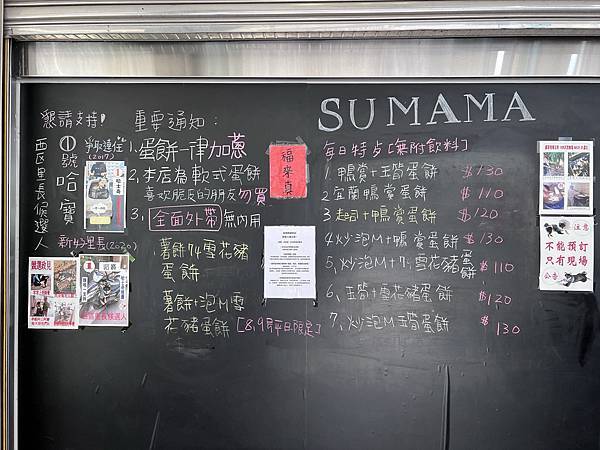 SUMAMA
懇請支持!
①號哈寶
西区里長候選人
爭取連任
(2017)
新好里長(2020)
競選啟見
招募
重要通知:
1、蛋餅一律加蔥
2、本店為軟式蛋餅
喜欢脆皮的朋友勿買
3、全面外帶無內用
薯餅
雪花豬
蛋餅
薯餅+泡M雪
花豬蛋餅[8,9月平日限定]
福來真
每日特点[無附飲料]
1、鴨賞+玉筍蛋餅 $130
2、宜蘭鴨賞蛋餅 $110
3、起司+鴨賞蛋餅 $120
4、炒泡M+鴨賞蛋餅 $130
5、炒泡M+ 雪花豬蛋餅 $110
6、玉筍+雪花豬蛋餅 $120
7、炒泡M玉筍蛋餅 $130
注意
不能預訂
只有現場
公告